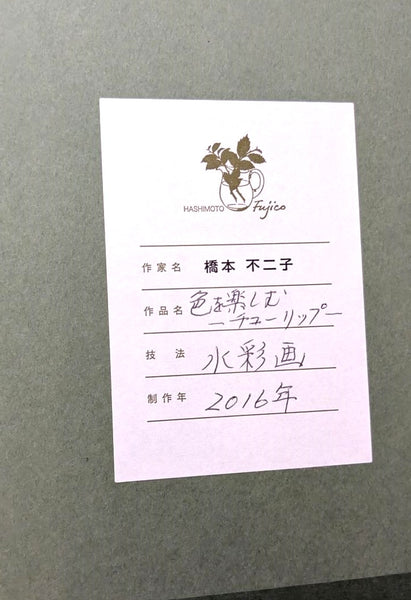 HASHIMOTO Fujico
作家名 橋本 不二子
作品名 色を楽しむ
ーチューリップー
技 法 水彩画
制作年 2016年